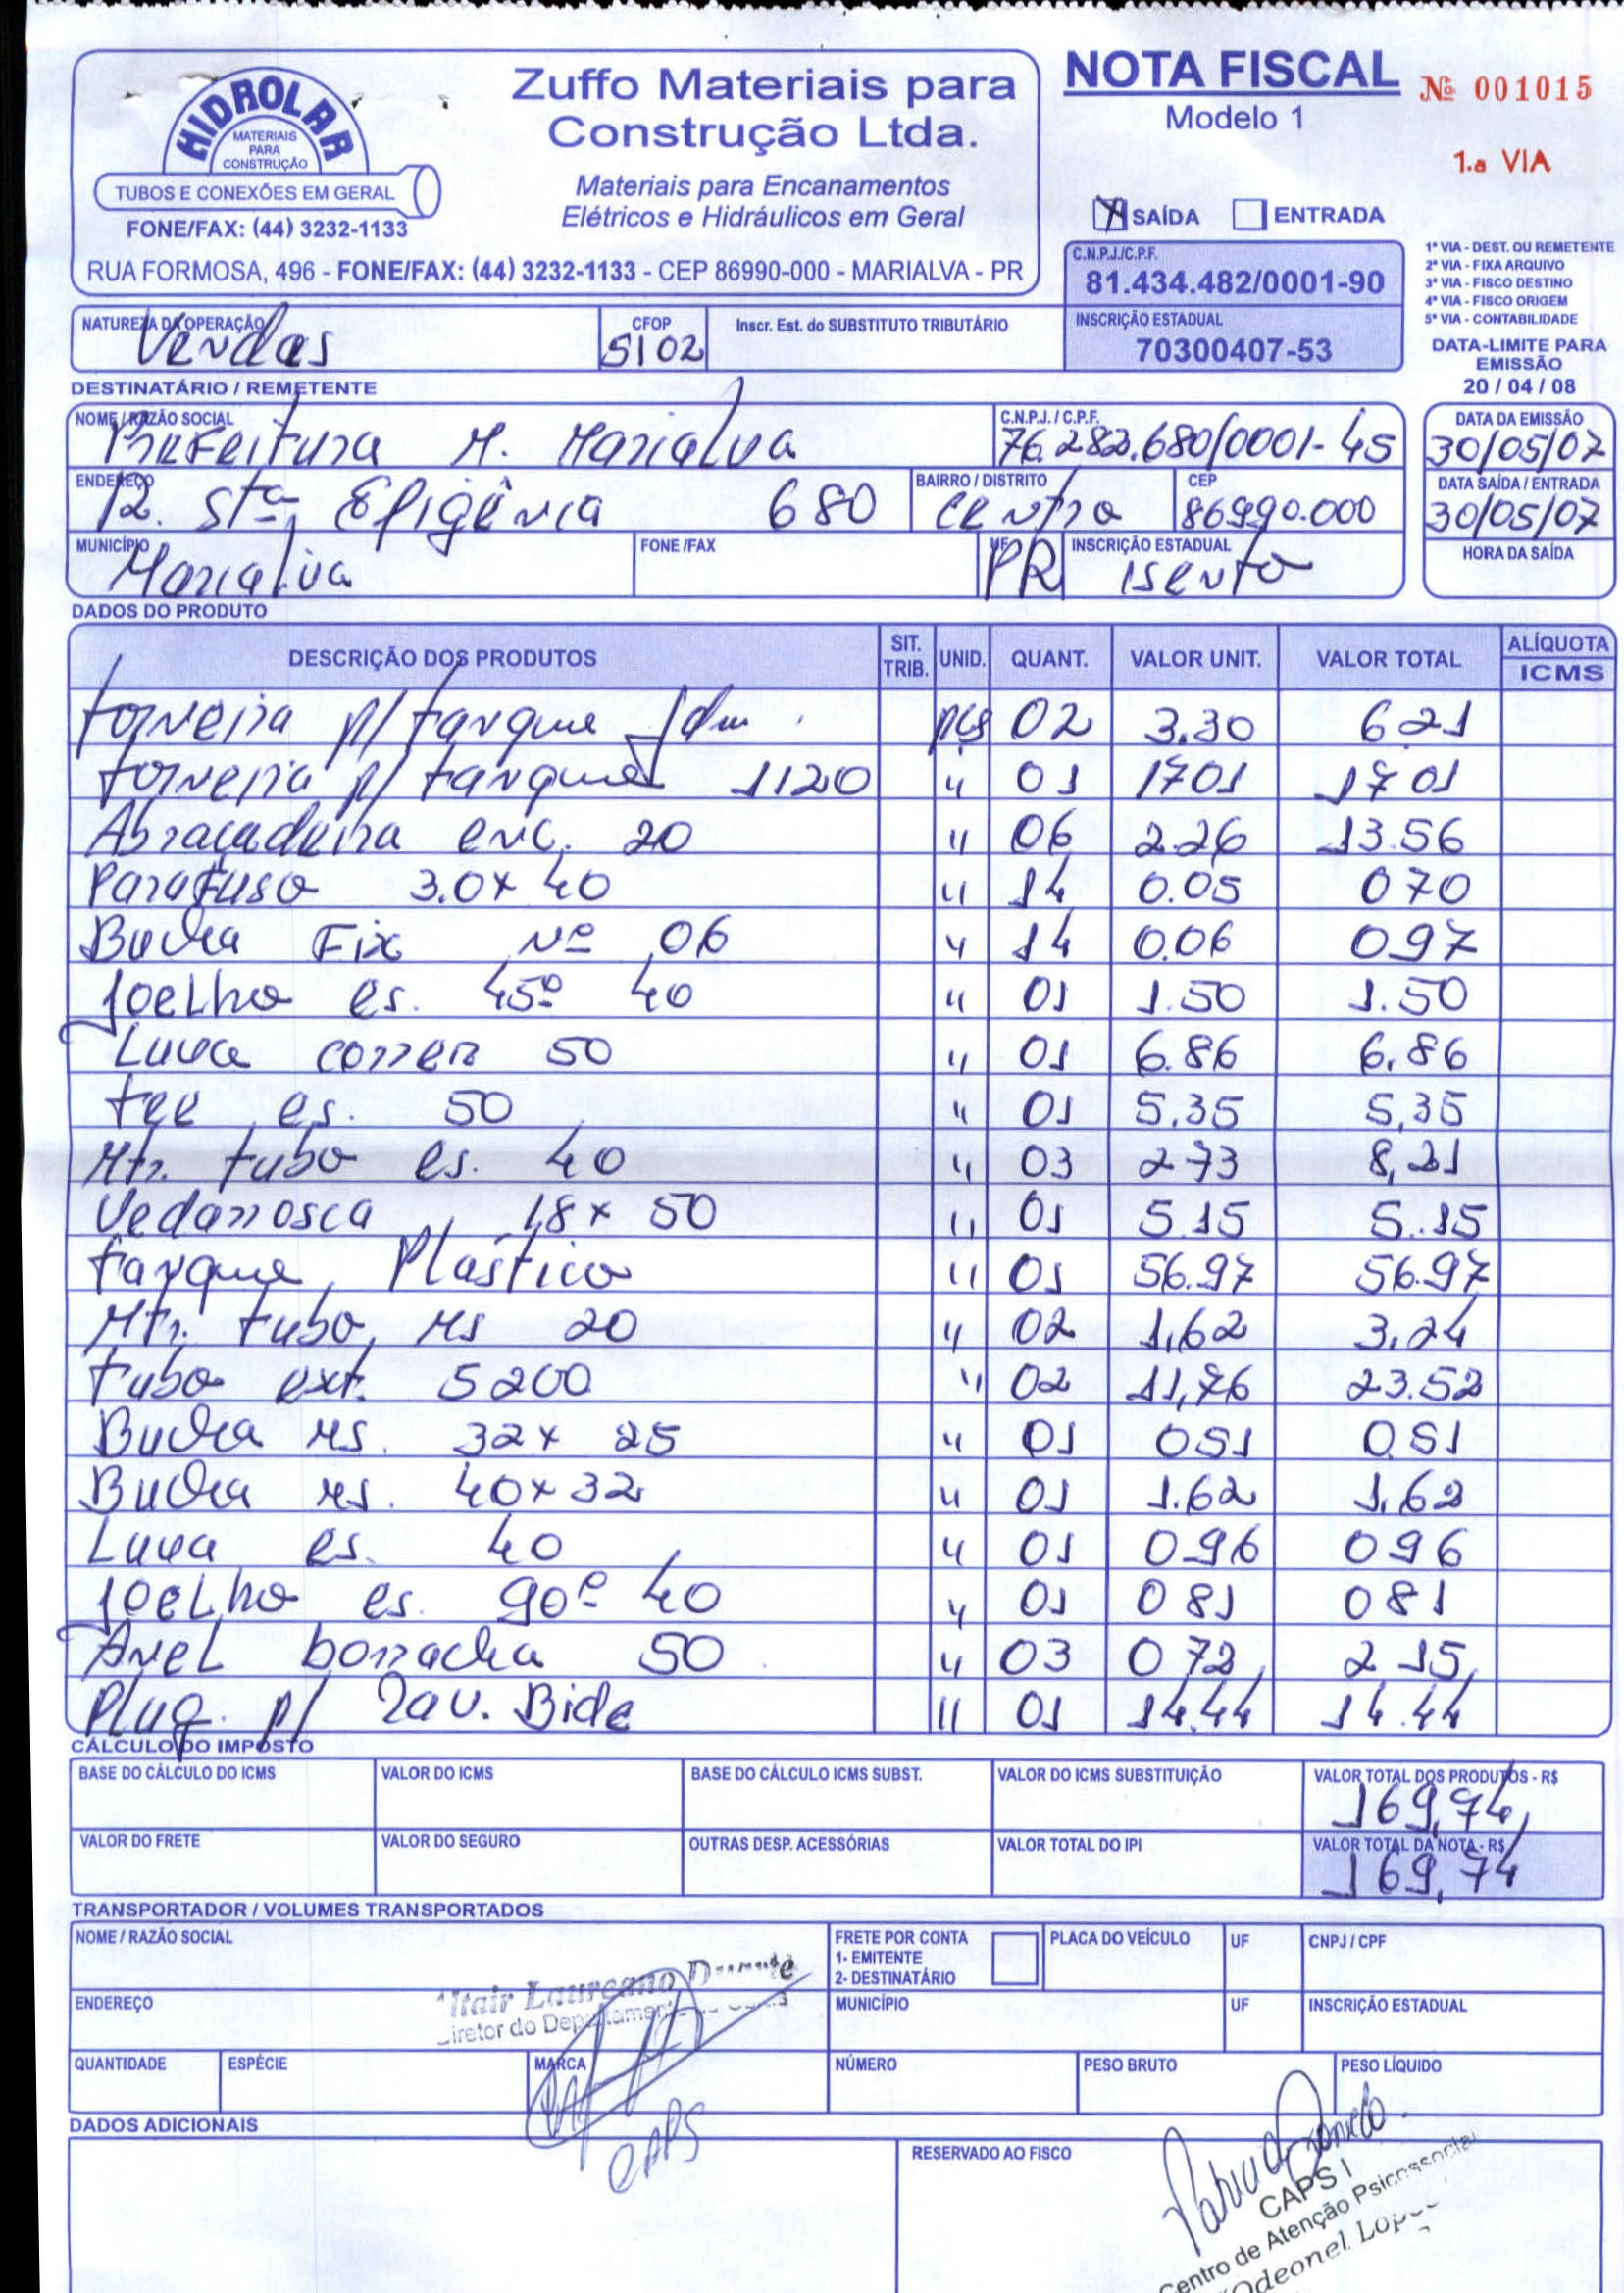 HIDROLAR
MATERIAIS
PARA
CONSTRUÇÃO
TUBOS E CONEXÕES EM GERAL
FONE/FAX: (44) 3232-1133
Zuffo Materiais para
Construção Ltda.
Materiais para Encanamentos
Elétricos e Hidráulicos em Geral
RUA FORMOSA, 496 - FONE/FAX: (44) 3232-1133 - CEP 86990-000 - MARIALVA - PR
NOTA FISCAL
Modelo 1
Nº 001015
1.a VIA
X SAÍDA ENTRADA
C.N.P.J./C.P.F.
81.434.482/0001-90
INSCRIÇÃO ESTADUAL
70300407-53
1ª VIA - DEST. OU REMETENTE
2ª VIA - FIXA ARQUIVO
3ª VIA - FISCO DESTINO
4ª VIA - FISCO ORIGEM
5ª VIA - CONTABILIDADE
DATA-LIMITE PARA
EMISSÃO
20 / 04 / 08
NATUREZA DA OPERAÇÃO
Vendas
CFOP
5102
Inscr. Est. do SUBSTITUTO TRIBUTÁRIO
DESTINATÁRIO / REMETENTE
NOME / RAZÃO SOCIAL
Prefeitura M. Marialva
C.N.P.J. / C.P.F.
76.282.680/0001-45
DATA DA EMISSÃO
30/05/07
ENDEREÇO
R. Sta Efigênia 680
BAIRRO / DISTRITO
Centro
CEP
86990.000
DATA SAÍDA / ENTRADA
30/05/07
MUNICÍPIO
Marialva
FONE /FAX
PR
INSCRIÇÃO ESTADUAL
isento
HORA DA SAÍDA
DADOS DO PRODUTO
DESCRIÇÃO DOS PRODUTOS SIT. TRIB. UNID. QUANT. VALOR UNIT. VALOR TOTAL ALÍQUOTA ICMS
torneira p/ tanque Jdm pçs 02 3.30 6 21
torneira p/ tanque 1120 " 01 17 01 17 01
Abraçadeira enc. 20 " 06 2.26 13.56
Parafuso 3.0x 40 " 14 0.05 0 70
Bucha Fix Nº 06 " 14 0.06 0 97
Joelho es. 45º 40 " 01 1.50 1.50
Luva correr 50 " 01 6.86 6.86
tee es. 50 " 01 5.35 5,35
Mtr. tubo es. 40 " 03 2 73 8,21
Vedarrosca 18x 50 " 01 5.15 5.15
tanque Plástico " 01 56.97 56.97
Mtr. tubo Ms 20 " 02 1,62 3,24
tubo ext. S 200 " 02 11,76 23.52
Bucha Ms. 32x 25 " 01 0 51 0 51
Bucha Ms. 40x32 " 01 1.62 1,62
Luva es. 40 " 01 0 96 0 96
Joelho es. 90º 40 " 01 0 81 0 81
Anel borracha 50 " 03 0 72 2 15
Plug. p/ Lav. Bide " 01 14.44 14.44
CÁLCULO DO IMPOSTO
BASE DO CÁLCULO DO ICMS VALOR DO ICMS BASE DO CÁLCULO ICMS SUBST. VALOR DO ICMS SUBSTITUIÇÃO VALOR TOTAL DOS PRODUTOS - R$
169,74
VALOR DO FRETE VALOR DO SEGURO OUTRAS DESP. ACESSÓRIAS VALOR TOTAL DO IPI VALOR TOTAL DA NOTA - R$
169,74
TRANSPORTADOR / VOLUMES TRANSPORTADOS
NOME / RAZÃO SOCIAL
FRETE POR CONTA
1- EMITENTE
2- DESTINATÁRIO
PLACA DO VEÍCULO UF CNPJ / CPF
Altair Laureano
Diretor do Departamento
ENDEREÇO MUNICÍPIO UF INSCRIÇÃO ESTADUAL
QUANTIDADE ESPÉCIE MARCA NÚMERO PESO BRUTO PESO LÍQUIDO
CAPS
DADOS ADICIONAIS
RESERVADO AO FISCO
CAPS I
Centro de Atenção Psicossocial